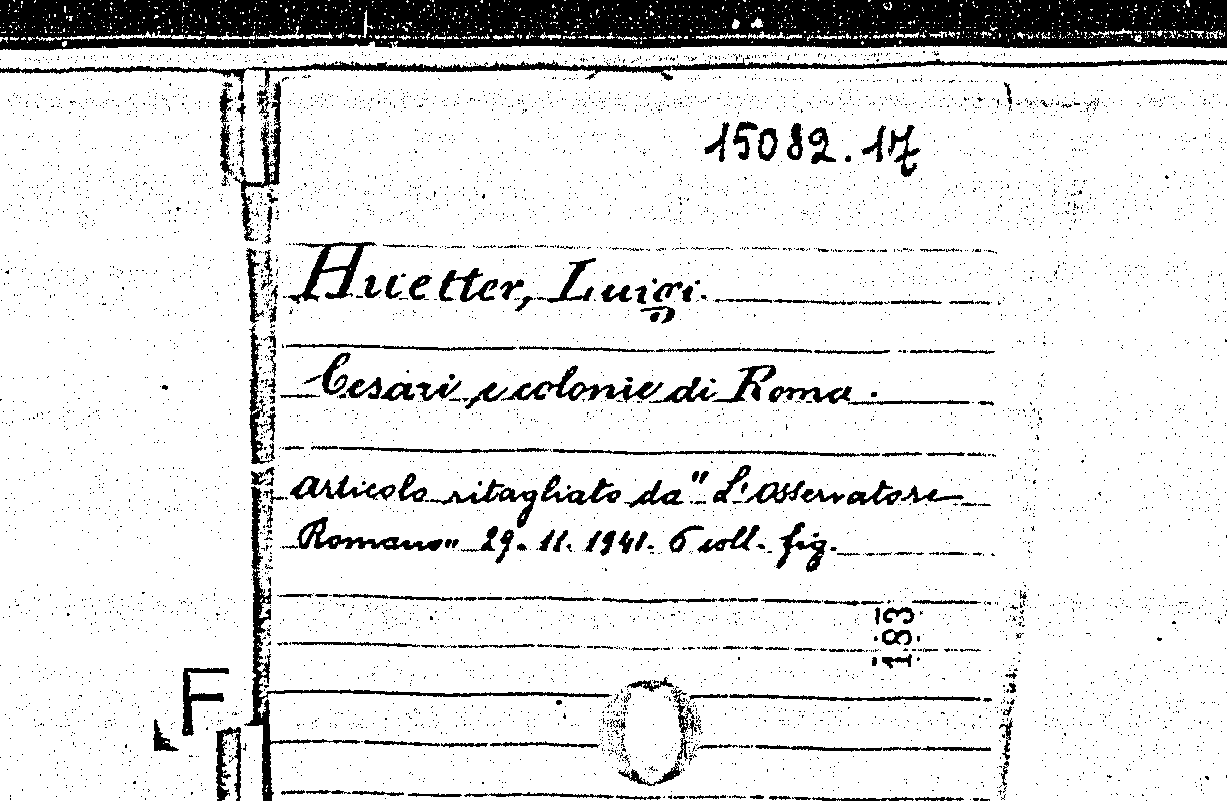 15082.17
Huetter, Luigi.
Cesari e colonie di Roma.
Articolo ritagliato da "L'Osservatore
Romano" 29. 11. 1941. 6 coll. fig.
183
F